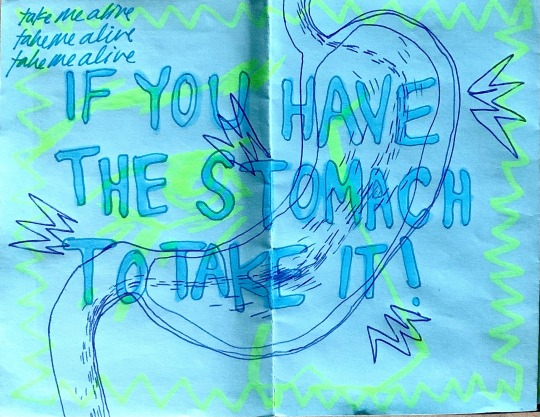 take me alive
take me alive
take me alive
IF YOU HAVE
THE STOMACH
TO TAKE IT!